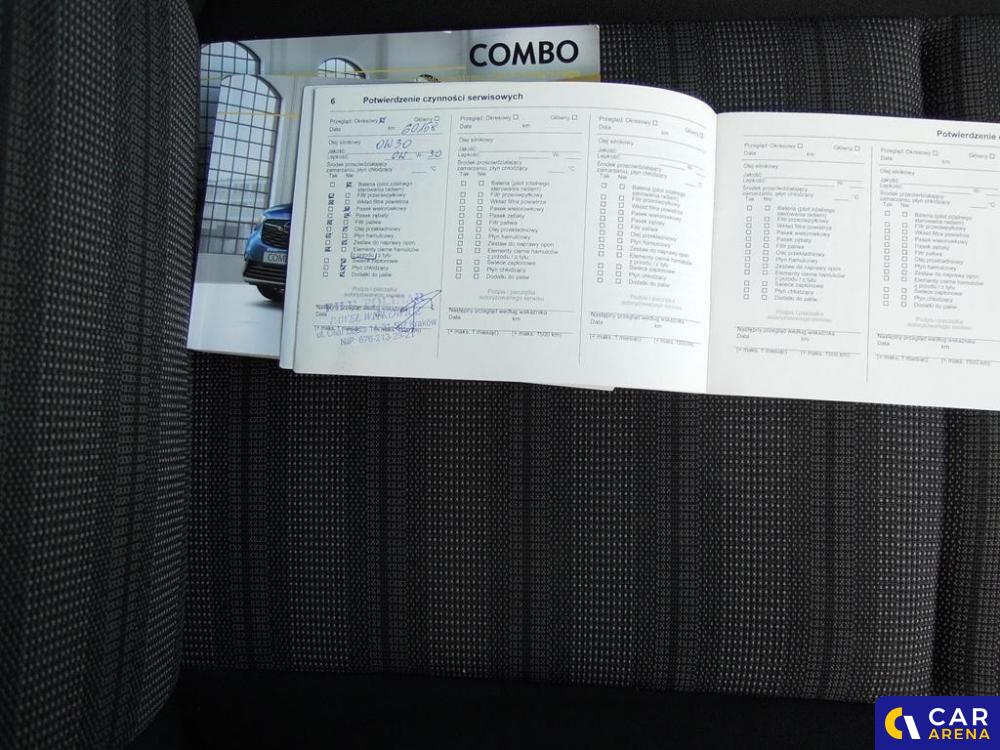 COMBO
6 Potwierdzenie czynności serwisowych
Przegląd: Okresowy Główny
Data km 60168
Olej silnikowy 0W30
Jakość:
Lepkość: 0W W- 30
Środek przeciwdziałający
zamarzaniu, płyn chłodzący °C
Tak Nie
Bateria (pilot zdalnego
sterowania radiem)
Filtr przeciwpyłkowy
Wkład filtra powietrza
Pasek wielorowkowy
Pasek zębaty
Filtr paliwa
Olej przekładniowy
Płyn hamulcowy
Zestaw do naprawy opon
Elementy cierne hamulców
z przodu / z tyłu
Świece zapłonowe
Płyn chłodzący
Dodatki do paliw
Podpis i pieczątka
autoryzowanego serwisu
Kraków
NIP: 676-213-23-21
Następny przegląd według wskaźnika
Data km
(+ maks. 1 miesiąc) (+ maks. 1500 km)
Przegląd: Okresowy Główny
Data km
Olej silnikowy
Jakość:
Lepkość: W-
Środek przeciwdziałający
zamarzaniu, płyn chłodzący °C
Tak Nie
Bateria (pilot zdalnego
sterowania radiem)
Filtr przeciwpyłkowy
Wkład filtra powietrza
Pasek wielorowkowy
Pasek zębaty
Filtr paliwa
Olej przekładniowy
Płyn hamulcowy
Zestaw do naprawy opon
Elementy cierne hamulców
z przodu / z tyłu
Świece zapłonowe
Płyn chłodzący
Dodatki do paliw
Podpis i pieczątka
autoryzowanego serwisu
Następny przegląd według wskaźnika
Data km
(+ maks. 1 miesiąc) (+ maks. 1500 km)
Przegląd: Okresowy Główny
Data km
Olej silnikowy
Jakość:
Lepkość: W-
Środek przeciwdziałający
zamarzaniu, płyn chłodzący °C
Tak Nie
Bateria (pilot zdalnego
sterowania radiem)
Filtr przeciwpyłkowy
Wkład filtra powietrza
Pasek wielorowkowy
Pasek zębaty
Filtr paliwa
Olej przekładniowy
Płyn hamulcowy
Zestaw do naprawy opon
Elementy cierne hamulców
z przodu / z tyłu
Świece zapłonowe
Płyn chłodzący
Dodatki do paliw
Podpis i pieczątka
autoryzowanego serwisu
Następny przegląd według wskaźnika
Data km
(+ maks. 1 miesiąc) (+ maks. 1500 km)
Potwierdzenie
Przegląd: Okresowy Główny
Data km
Olej silnikowy
Jakość:
Lepkość: W-
Środek przeciwdziałający
zamarzaniu, płyn chłodzący °C
Tak Nie
Bateria (pilot zdalnego
sterowania radiem)
Filtr przeciwpyłkowy
Wkład filtra powietrza
Pasek wielorowkowy
Pasek zębaty
Filtr paliwa
Olej przekładniowy
Płyn hamulcowy
Zestaw do naprawy opon
Elementy cierne hamulców
z przodu / z tyłu
Świece zapłonowe
Płyn chłodzący
Dodatki do paliw
Podpis i pieczątka
autoryzowanego serwisu
Następny przegląd według wskaźnika
Data km
(+ maks. 1 miesiąc) (+ maks. 1500 km)
Przegląd: Okresowy Główny
Data km
Olej silnikowy
Jakość:
Lepkość:
Środek przeciwdziałający
zamarzaniu, płyn chłodzący °C
Tak Nie
Bateria (pilot zdalnego
sterowania radiem)
Filtr przeciwpyłkowy
Wkład filtra powietrza
Pasek wielorowkowy
Pasek zębaty
Filtr paliwa
Olej przekładniowy
Płyn hamulcowy
Zestaw do naprawy opon
Elementy cierne hamulców
z przodu / z tyłu
Świece zapłonowe
Płyn chłodzący
Dodatki do paliw
Podpis i pieczątka
autoryzowanego serwisu
Następny przegląd według wskaźnika
Data km
(+ maks. 1 miesiąc) (+ maks. 1500 km)
CAR
ARENA